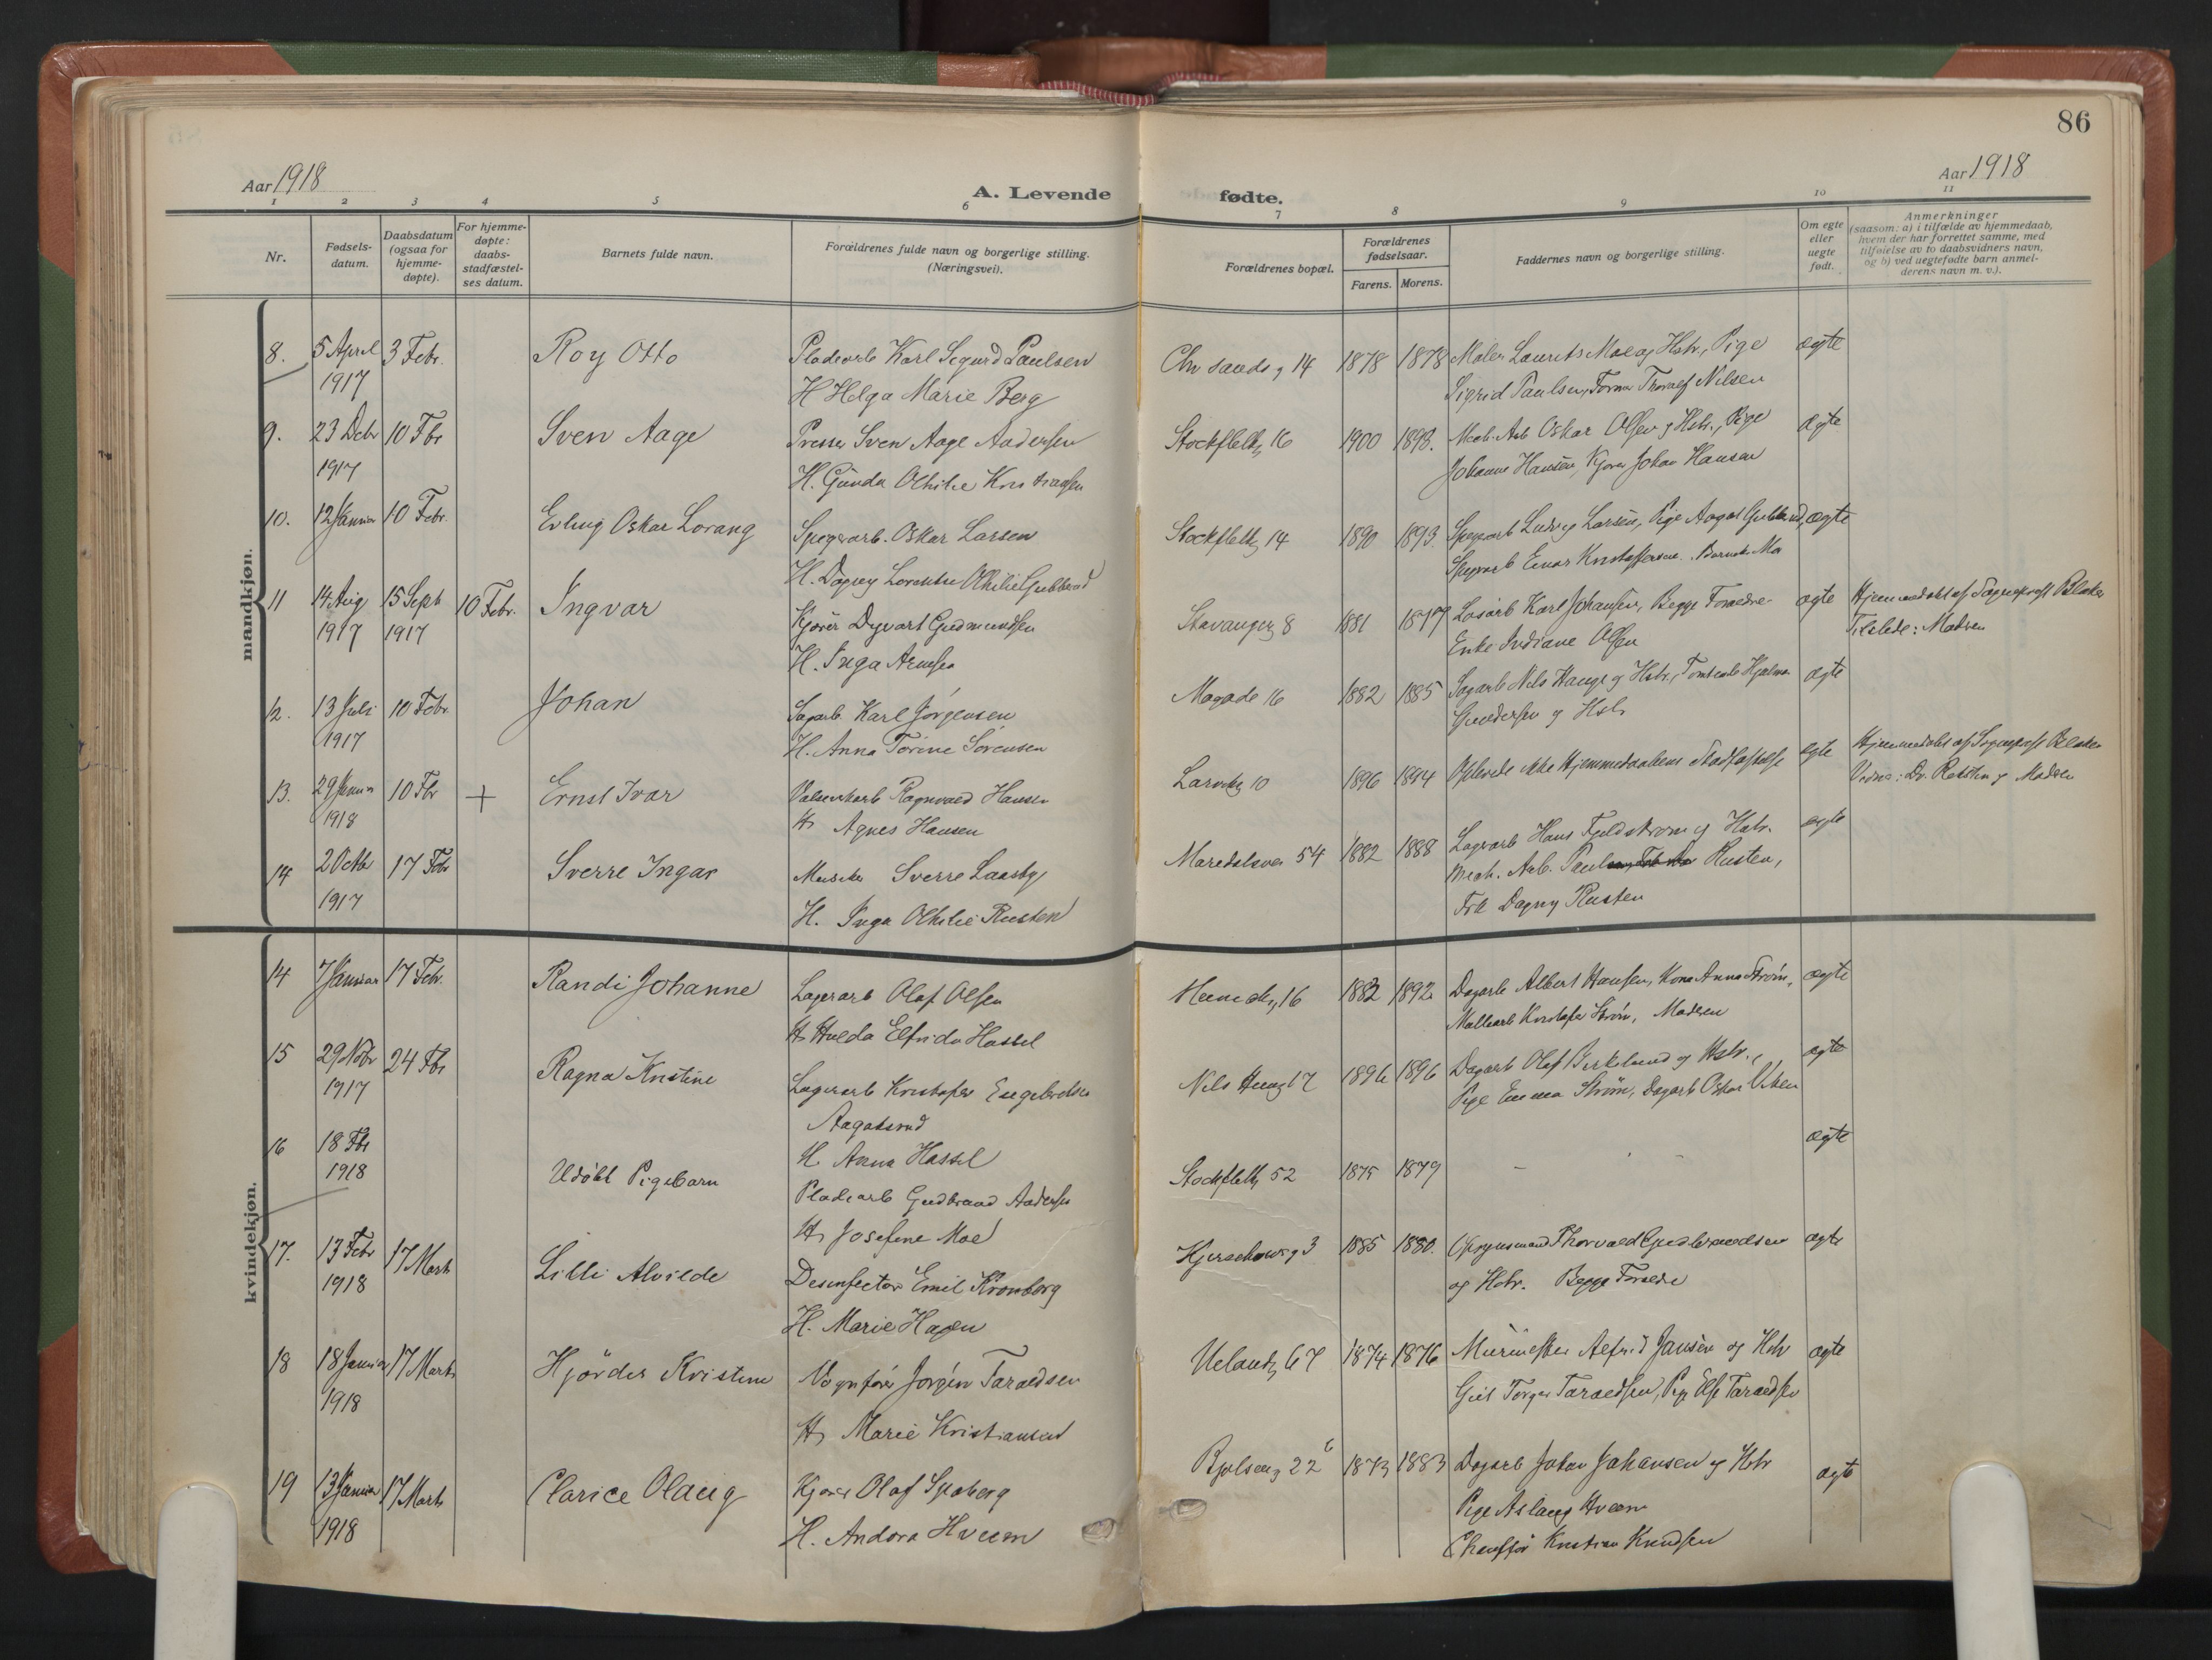 86
Aar 1918
A. Levende
fødte.
Aar 1918
1 2 3 4 5 6 7 8 9 10 11
Nr.
Fødsels-
datum.
Daabsdatum
(ogsaa for
hjemme-
døpte).
For hjemme-
døpte:
daabs-
stadfæstel-
ses datum.
Barnets fulde navn.
Forældrenes fulde navn og borgerlige stilling.
(Næringsvei).
Forældrenes bopæl.
Forældrenes
fødselsaar.
Farens. Morens.
Faddernes navn og borgerlige stilling.
Om egte
eller
uegte
født.
Anmerkninger
(saasom: a) i tilfælde av hjemmedaab,
hvem der har forrettet samme, med
tilføielse av to daabsvidners navn,
og b) ved uegtefødte barn anmel-
derens navn m. v.).
mandkjøn.
8. 5 April 3 Febr. Roy Otto Pladearb Karl Sigurd Paulsen
1917 H Helga Marie Berg
Chr sands g 14 1878 1878 Maler Laurits Moe og Hstr., Pige ægte
Sigrid Paulsen, Thoralf Nilsen
9. 23 Debr 10 Fbr Sven Aage Presser Sven Aage Andersen
1917 H. Gunda Othilie
Stockflethg 16 1900 1898. Mek. Arb Oskar Olsen og Hstr., Pige ægte
Johanne Hansen, Kjører Johan Hansen
10. 12 Januar 10 Febr. Erling Oskar Lorang Spigerarb. Oskar Larsen
H. Dagny Othilie Gubberud
Stockflethg 14 1890 1893. Spigerarb Ludvig Larsen, Pige Aagot Gubberud, ægte
Spigerarb Einar Kristoffersen. Barnets Mo
11 14 Aug 15 Sept 10 Febr. Ingvar Kjører Dyvart Gudmundsen
1917 1917 H. Inga Arnesen
Stavangerg 8 1881 1877 Løsarb Karl Johansen, Begge Forældre ægte Hjemmedøbt af Sogneprest Blaker
Enke Indiane Olsen Tilstede: Modren
12. 13 Juli 10 Febr. Johan Sagarb. Karl Jørgensen
1917 H. Anna Torine Sørensen
Mogade 16 1882 1885 Sagarb Nils Hauge og Hstr., Tomtearb Hjalmar ægte
Gundersen og Hstr
13. 29 Januar 10 Fbr + Ernst Ivar Valseverkarb Ragnvald Hansen
1918 H Agnes Hansen
Larvikg 10 1896 1894 Oplevede ikke Hjemmedaabens Stadfæstelse ægte Hjemmedøbt af Sogneprest Blaker
Vidne: Dr. og Modren
14 2 Octbr 17 Fbr Sverre Ingar Musiker Sverre Laasby
1917 H. Inga Othilie Rusten
Maridalsvei 54 1882 1888 Lagerarb Hans Fjeldstrøm og Hstr. ægte
Mech. Arb. Paul Rusten,
Frk Dagny Rusten
kvindekjøn.
14 7 Januar 17 Febr. Randi Johanne Lagerarb Olaf Olsen
H Hulda Elfrida Hassel
16 1882 1892 Dagarb Albert Hansen, Kona Anna Strøm, ægte
Møllearb Kristofer Strøm, Modren
15 29 Nobr 24 Fbr Ragna Kristine Lagerarb Kristofer Engebretsen
1917 Aagatsrud
H Anna Hassel
17 1896 1896 Dagarb Olaf Birkelund og Hstr., ægte
Pige Emma Strøm, Dagarb Oskar
16 18 Fbr Udøbt Pigebarn Pladearb Gudbrand Andersen
1918 H Josefine Moe
Stockflethg 52 1875 1879 ægte
17. 13 Febr 17 Marts Lilli Alvilde Desinfector Emil Kronborg
1918 H. Marie Hagen
Hjerschowsg 3 1885 1880. Opsynsmand Thorvald Gudbrandsen ægte
og Hstr. Begge Forældre
18 18 Januar 17 Marts Hjördis Kristine Vognfører Jørgen Taraldsen
1918 H Marie Kristiansen
Uelandsg 67 1874 1876 Murmester Alfred Jansen og Hstr ægte
Gut Torger Taraldsen, Pige Else Taraldsen
19 13 Januar 17 Marts Clarice Olaug Kjører Olaf Sjøberg
1918 H. Andora Hveem
Bjølseng 22 b 1873 1883 Dagarb Johan Johansen og Hstr ægte
Pige Aslaug Hveem
Chauffør Kristian Knudsen